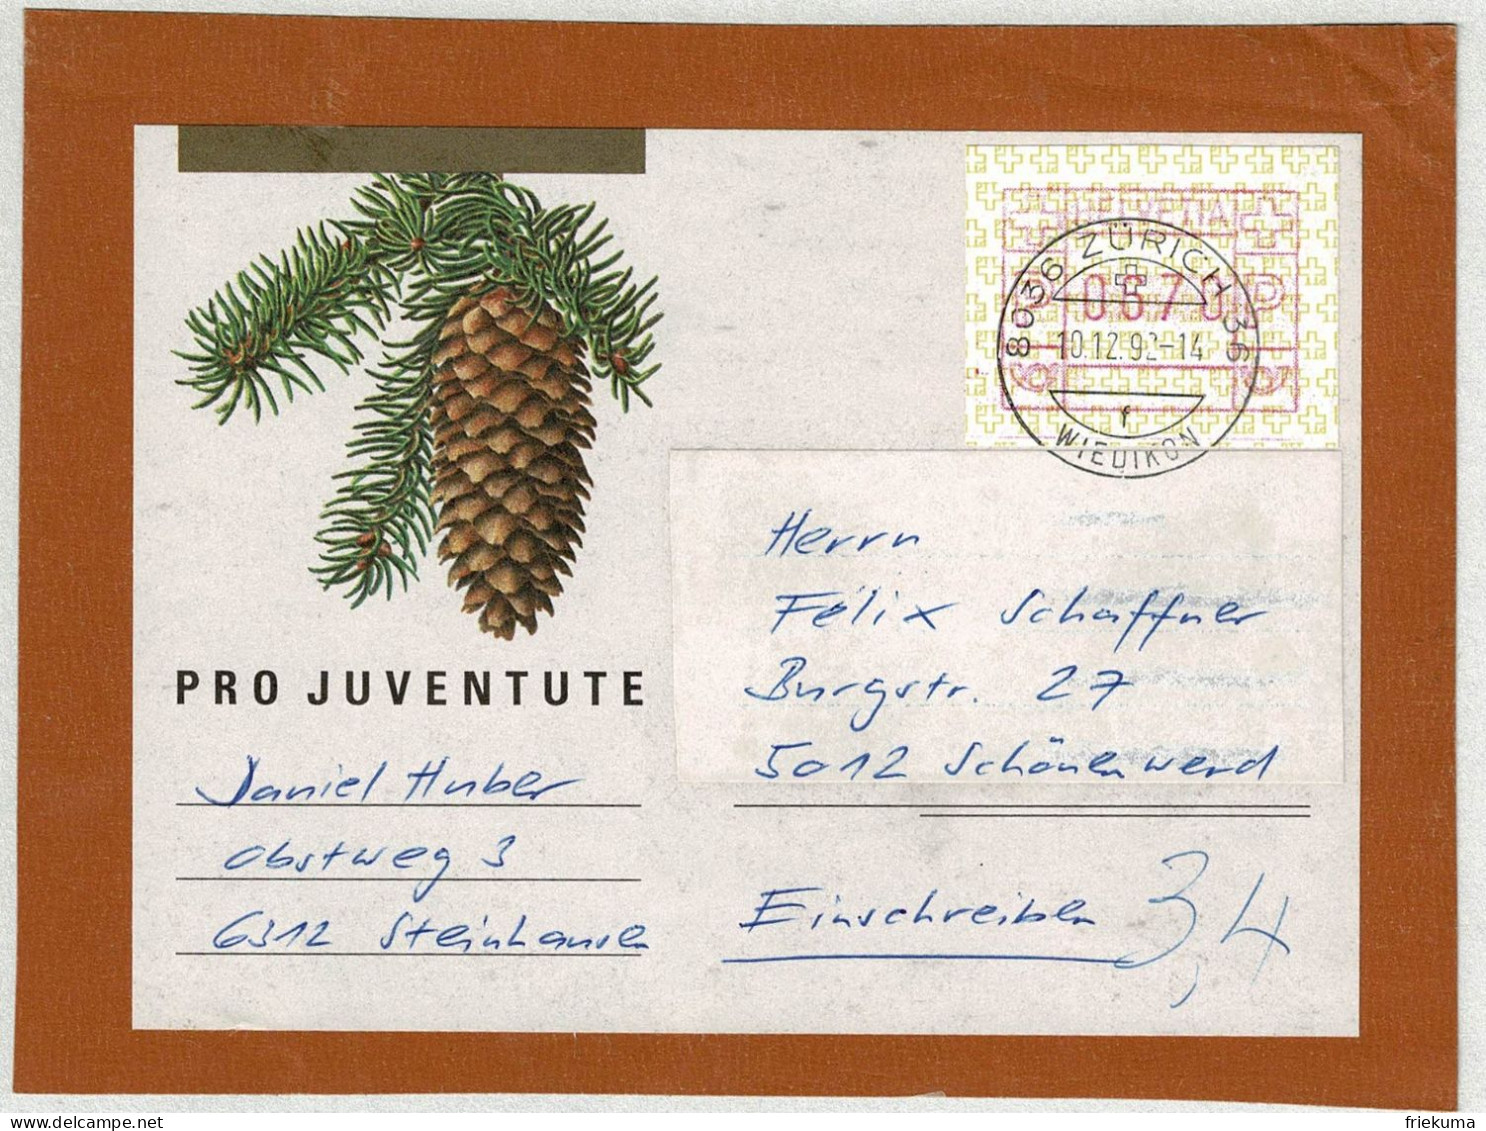 HELVETIA
0670
P
8036 ZÜRICH 36
10.12.92-14
f
WIEDIKON
Herrn
Felix Schaffner
Burgstr. 27
5012 Schönenwerd
PRO JUVENTUTE
Daniel Huber
Obstweg 3
6312 Steinhausen
Einschreiben 3,4
delcampe.net
friekuma